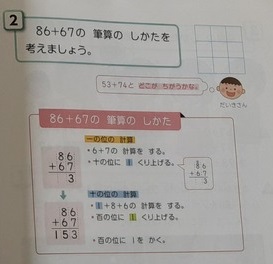 2
86+67の 筆算の しかたを
考えましょう。
53+74と どこが ちがうかな。
だいきさん
86+67の 筆算の しかた
一の位の 計算
• 6+7の 計算を する。
• 十の位に 1 くり上げる。
86
+67
3
86
+67
3
十の位の 計算
• 1+8+6の 計算を する。
• 百の位に 1 くり上げる。
86
+67
153
• 百の位に 1を かく。